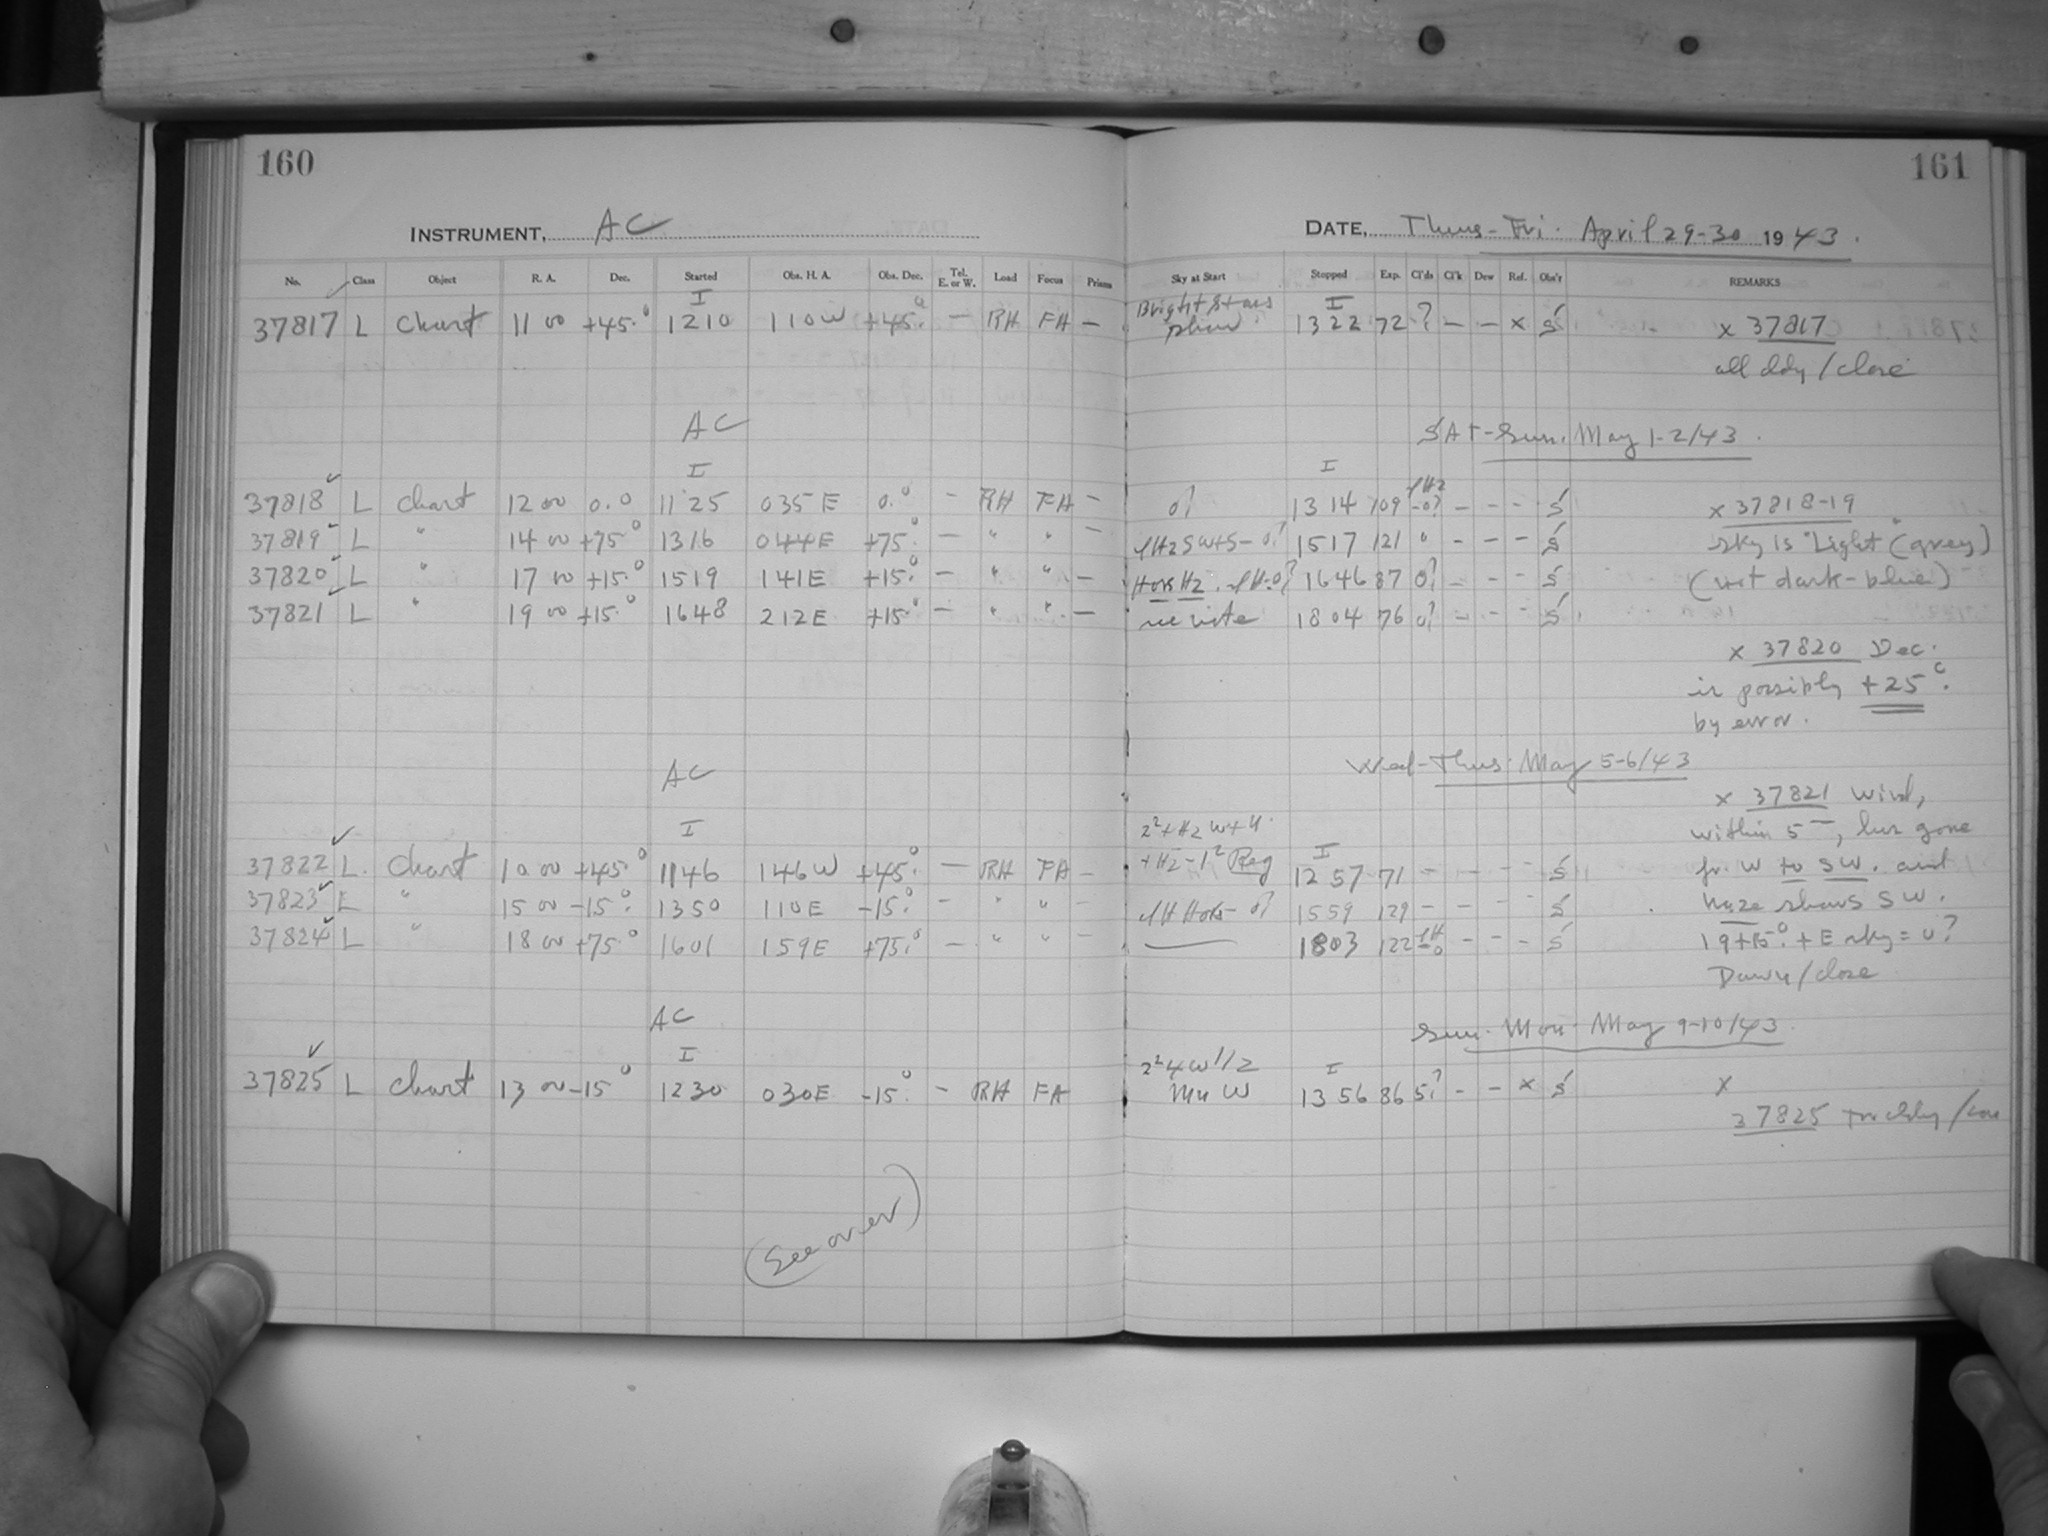 160
161
INSTRUMENT, AC
DATE, Thurs-Fri. April 29-30 1943.
No. Class Object R. A. Dec. Started Obs. H. A. Obs. Dec. Tel. E. or W. Load Focus Prisms Sky at Start Stopped Exp. Cl'ds Cl'k Dew Ref. Obs'r REMARKS
I Bright Stars I
37817 L Chart 11 00 +45.° 1210 110W +45.° — RH FA — show. 1322 72 ? — — x S x 37817
all cldy/close
AC SAT-Sun. May 1-2/43.
I I
37818 ✓ L Chart 12 00 0.0 1125 035E 0.° - RH FA - 0? 1314 109 - - - S x 37818-19
37819 ✓ L " 14 00 +75.° 1316 044E +75.° - " " - 1517 121 0 - - - S sky is "Light (grey)
37820 ✓ L " 17 00 +15.° 1519 141E +15.° - " " - Hors Hz. 1646 87 0? - - - S (not dark-blue)
37821 ✓ L " 19 00 +15.° 1648 212E +15.° - " " - see note 1804 76 0? - - - S
x 37820 Dec.
is possibly +25°.
by error.
AC Wed-Thus. May 5-6/43
x 37821 wind,
I 2²+Hz W+
within 5—, has gone
37822 ✓ L. Chart 10 00 +45.° 1146 146W +45.° — RH FA - +Hz-1² Reg I 1257 71 - - - - S fr. W to SW. and
37823 ✓ L " 15 00 -15.° 1350 110E -15.° - " " - Hors- 0? 1559 129 - - - - S haze shows SW.
37824 ✓ L " 18 00 +75.° 1601 159E +75.° - " " - 1803 122 - - - S 19+15.° + E sky = 0?
Dawn/close
AC Sun-Mon. May 9-10/43.
✓ I 2² 4W 1/2 I
37825 L Chart 13 00 -15° 1230 030E -15.° - RH FA Mn W 1356 86 5? - - x S x
37825
(See over)